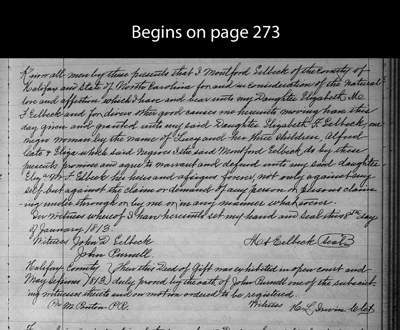 Begins on page 273
Know all men by these presents that I Montford Eelbeck of the County of
Halifax and State of North Carolina for and in consideration of the natural
love and affection which I have and bear unto my Daughter Elizabeth Mc
F Eelbeck and for divers other good causes me hereunto moving have this
day given and granted unto my said Daughter Elizabeth F. Eelbeck, one
negro woman by the name of and her three children, Alford
Cate & Eliza which said Negroes I the said Montford Eelbeck do by these
presents promise and agree to warrant and defend unto my said daughter
Eliza F Eelbeck her heirs and assigns forever, not only against my
self but against the claim or demand of any person or persons claim
ing under through or by me or in any manner whatsoever
In Witness whereof I have hereunto set my hand and seal this 8th day
of January 1813.
Witness John D Eelbeck Mt Eelbeck Seal
John Purnell
Halifax County Then this Deed of Gift was exhibited in open court and
May Sessions 1813 duly proved by the oath of John Purnell one of the subscrib
ing witnesses thereto and on motion ordered to be registered
M. Binton PR. Witness